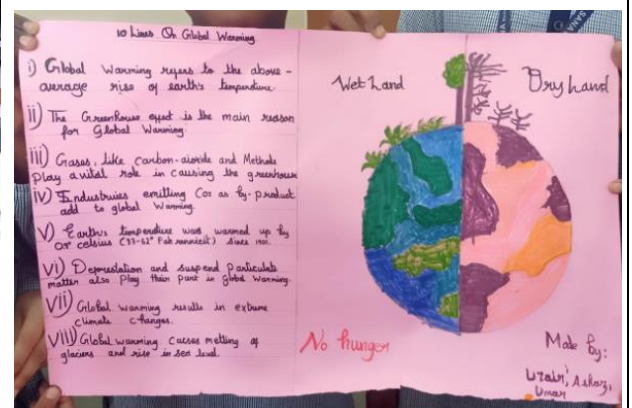 10 Lines On Global Warming
i) Global Warming refers to the above-
average rise of earth's temperature.
ii) The Greenhouse effect is the main reason
for Global Warming.
iii) Gases, like carbon-dioxide and Methane
play a vital role in causing the greenhouse
iv) Industries emitting Co2 as by-product
add to global Warming.
v) Earth's temperature was warmed up by
celsius Since
vi) Deforestation and suspend Particulate
matter also Play their part in global Warming.
vii) Global warming results in extreme
climate changes.
viii) Global warming causes melting of
glaciers and rise in sea level.
Wet Land
Dry Land
No hunger
Made By:
Uzair, Ashaz,
Umar
SANA